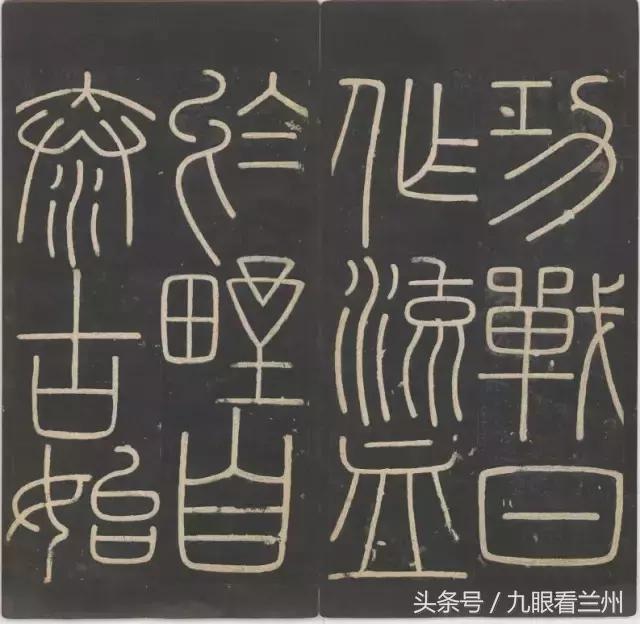 功戰日
作流血
於野自
泰古始
头条号 / 九眼看兰州